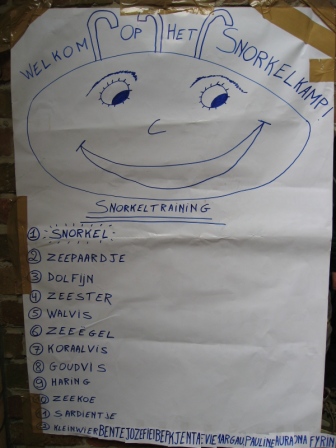 WELKOM OP HET SNORKELKAMP!
SNORKELTRAINING
1 SNORKEL
2 ZEEPAARDJE
3 DOLFIJN
4 ZEESTER
5 WALVIS
6 ZEEËGEL
7 KORAALVIS
8 GOUDVIS
9 HARING
10 ZEEKOE
11 SARDIENTJE
KLEINWIER BENTE JOZEFIEN PAULINE